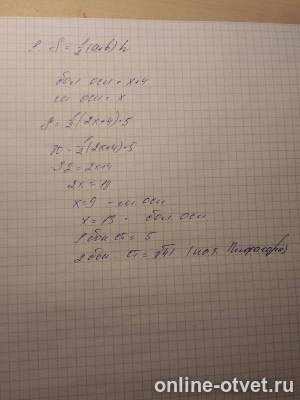 S = 1/2 (a+b) h
бол осн = x+4
м осн = x
S = 1/2 (2x+4)·5
80 = 1/2 (2x+4)·5
32 = 2x+4
2x = 18
x=9 - м осн
x = 13 - бол осн
1 бок ст = 5
2 бок ст = √41 (по т. Пифагора)
online-otvet.ru